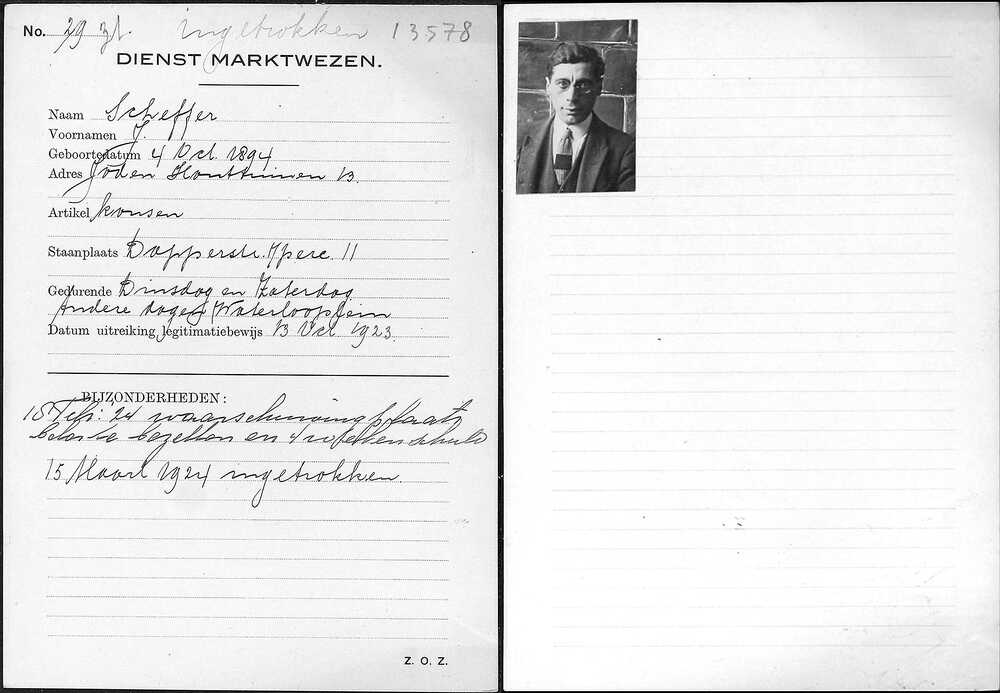 No. 29 zt. ingetrokken 13578
DIENST MARKTWEZEN.
Naam Scheffer
Voornamen J.
Geboortedatum 4 Oct. 1894
Adres Joden Houttuinen 13.
Artikel kousen
Staanplaats Dapperstr. 11
Gedurende Dinsdag en Zaterdag
Andere dagen Waterlooplein
Datum uitreiking legitimatiebewijs 13 Oct. 1923.
BIJZONDERHEDEN:
15 Feb: '24 waarschuwing plaats
beter te bezetten en 4 weken schuld
15 Maart 1924 ingetrokken.
Z. O. Z.